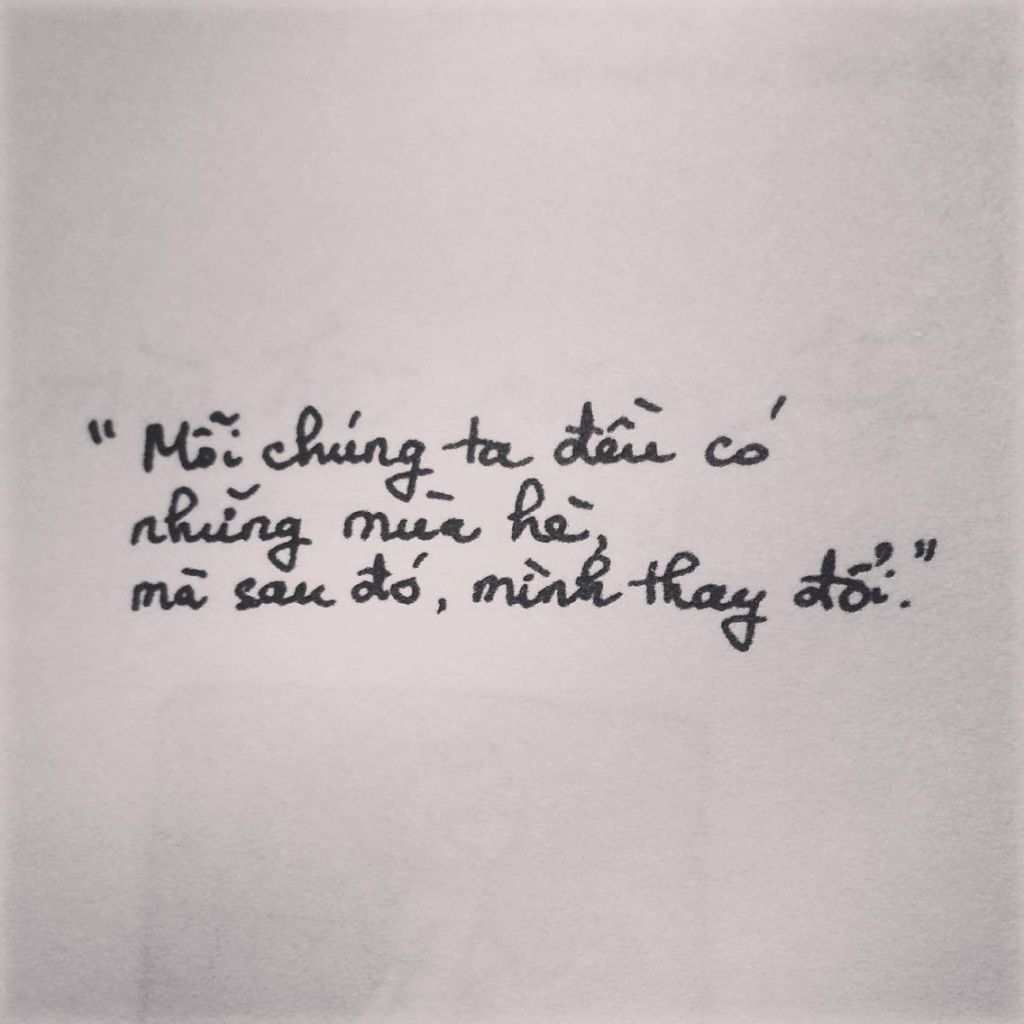 “Mỗi chúng ta đều có
những mùa hè,
mà sau đó, mình thay đổi.”